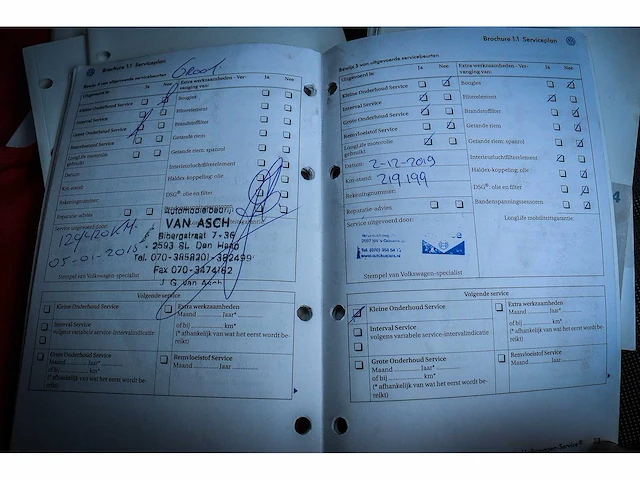 Brochure 1.1 Serviceplan
Groot
Bewijs van uitgevoerde servicebeurten
Uitgevoerd is:
Ja Nee
Extra werkzaamheden - Ver-
vanging van:
Ja Nee
Kleine Onderhoud Service
Interval Service
Grote Onderhoud Service
Remvloeistof Service
LongLife motorolie
gebruikt
Datum:
Km-stand:
Rekeningnummer:
Reparatie-advies
Bougies
Filterelement
Brandstoffilter
Getande riem:
Getande riem: spanrol
Interieurluchtfilterelement
Haldex-koppeling: olie
DSG®: olie en filter
Service uitgevoerd door:
05-01-2015
Automobielbedrijf
VAN ASCH
Bibergstraat 7 - 36
2593 BL Den Haag
Tel. 070-3858201 - 382499
Fax 070-3474162
J G van Asch
Stempel van Volkswagen-specialist
Volgende service
Kleine Onderhoud Service
Interval Service
volgens variabele service-intervalindicatie
Grote Onderhoud Service
Maand ........ Jaar*
of bij ........ km*
(* afhankelijk van wat het eerst wordt be-
reikt)
Extra werkzaamheden
Maand ........ Jaar*
of bij ........ km*
(* afhankelijk van wat het eerst wordt be-
reikt)
Remvloeistof Service
Maand ........ Jaar
Brochure 1.1 Serviceplan
Bewijs van uitgevoerde servicebeurten
Uitgevoerd is:
Ja Nee
Extra werkzaamheden - Ver-
vanging van:
Ja Nee
Kleine Onderhoud Service
Interval Service
Grote Onderhoud Service
Remvloeistof Service
LongLife motorolie
gebruikt
Datum: 2-12-2019
Km-stand: 219.199
Rekeningnummer:
Reparatie-advies
Bougies
Filterelement
Brandstoffilter
Getande riem
Getande riem: spanrol
Interieurluchtfilterelement
Haldex-koppeling: olie
DSG®: olie en filter
Bandenspanningssensoren
Service uitgevoerd door:
LongLife mobiliteitsgarantie:
Stempel van Volkswagen-specialist
Volgende service
Kleine Onderhoud Service
Interval Service
volgens variabele service-intervalindicatie
Grote Onderhoud Service
Maand ........ Jaar*
of bij ........ km*
(* afhankelijk van wat het eerst wordt be-
reikt)
Extra werkzaamheden
Maand ........ Jaar*
of bij ........ km*
(* afhankelijk van wat het eerst wordt be-
reikt)
Remvloeistof Service
Maand ........ Jaar